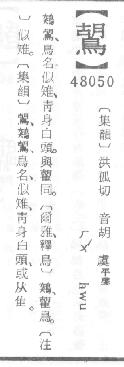 【】
48050
〔集韻〕洪孤切 音胡 虞平聲
ㄏㄨˊ hwu
鶟、鳥名、似雉、青身白頭。與鶦同。〔爾雅釋鳥〕鶟、鶦鳥。〔注
〕似雉。〔集韻〕鶟、鳥名、似雉、青身白頭、或从隹。